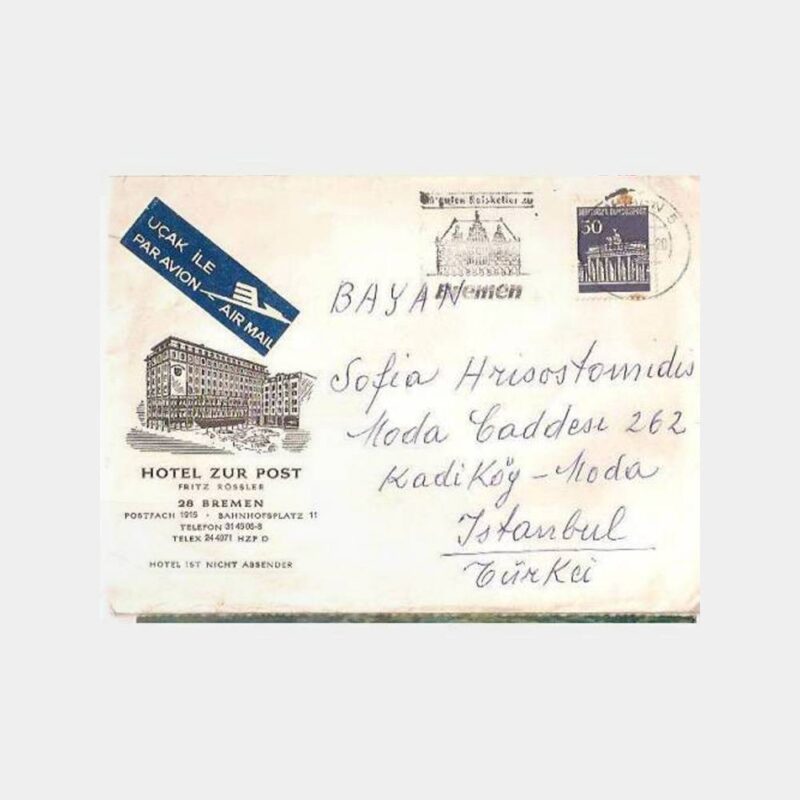 UÇAK İLE
PAR AVION
AIR MAIL
guten Ratskeller zu
Bremen
DEUTSCHE BUNDESPOST
50
5
20
BAYAN
Sofia Hrisostomidis
Moda Caddesi 262
Kadiköy - Moda
Istanbul
Türkei
HOTEL ZUR POST
FRITZ RÖSSLER
28 BREMEN
POSTFACH 1915 · BAHNHOFSPLATZ 11
TELEFON 31 45 06-8
TELEX 24 4971 HZP D
HOTEL IST NICHT ABSENDER